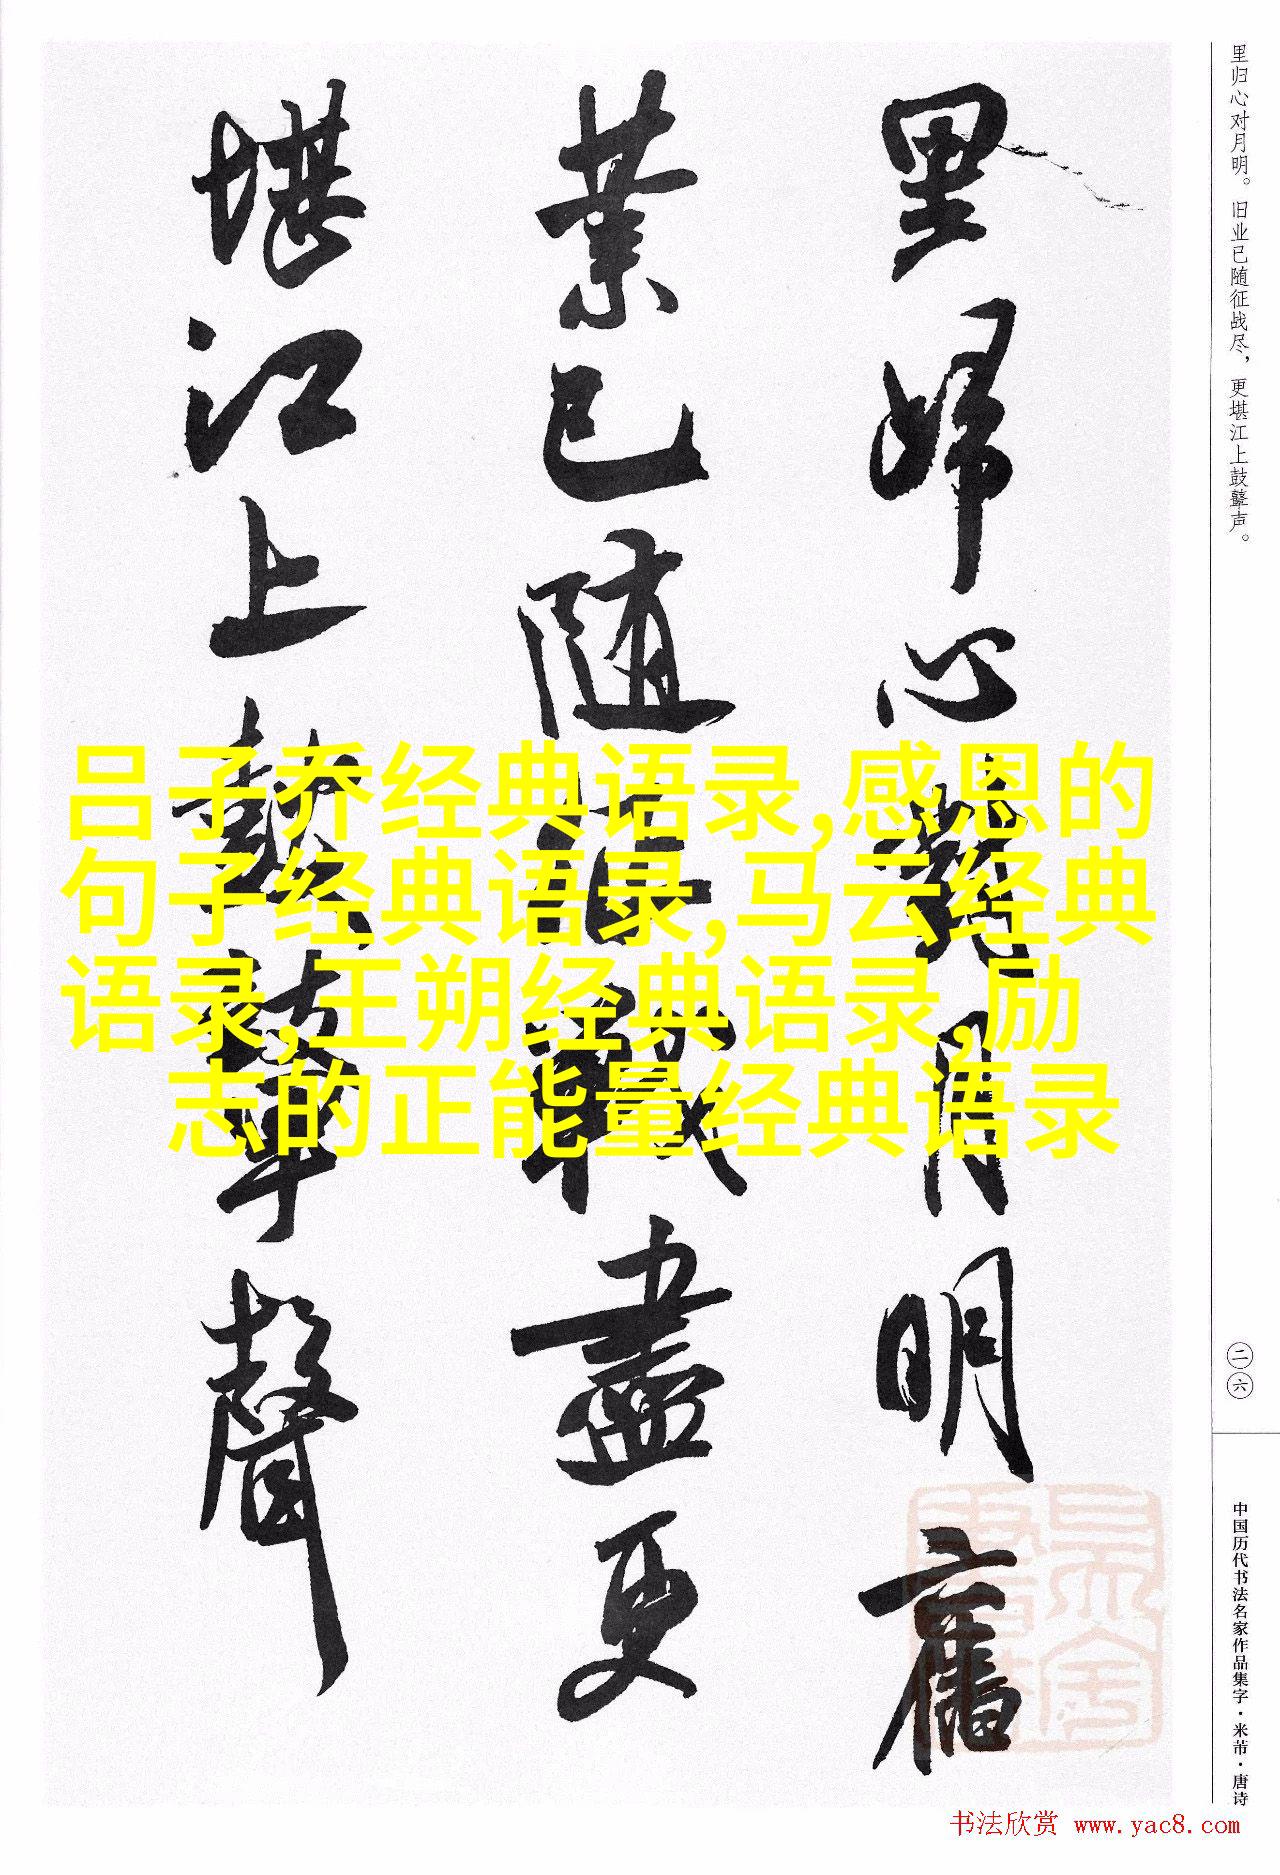 里归心对月明。旧业已随征战尽，更堪江上鼓鼙声。
里歸心對月明舊
業已随征戰盡更
堪江上鼓鼙聲
吕子乔经典语录,感恩的
句子经典语录,马云经典
语录,王朔经典语录,励
志的正能量经典语录
二六
中国历代书法名家作品集字·米芾·唐诗
书法欣赏 www.yac8.com